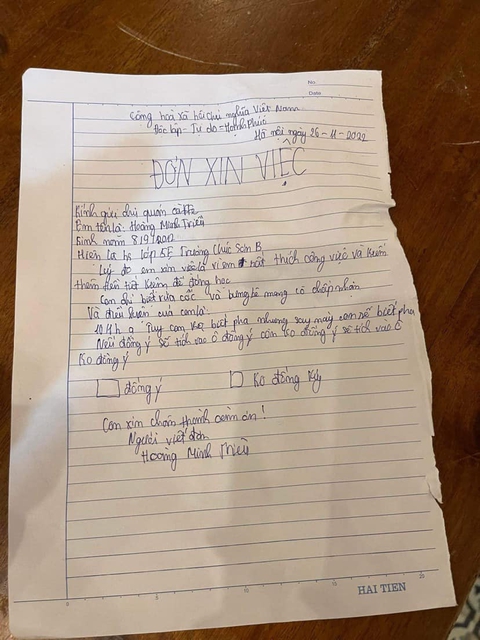 No:
Date
Cộng hoà xã hội chủ nghĩa Việt Nam
Độc lập - Tự do - Hạnh Phúc
Hà nội ngày 26-11-2022
ĐƠN XIN VIỆC
Kính gửi chủ quán
Em tên là: Hoàng Minh Triết
Sinh năm 8/9/2012
Hiện là hs lớp 5E Trường Chúc Sơn B
Lý do em xin việc là vì em rất thích công việc và kiếm
thêm tiền tiết kiệm để đóng học
Con chỉ biết rửa cốc và bưng bê mong cô chấp nhận
Và điều kiện của con là:
10k1h ạ Tuy con ko biết pha nhưng sau này con sẽ biết pha
Nếu đồng ý sẽ tích vào ô đồng ý còn ko đồng ý sẽ tích vào ô
Ko đồng ý
đồng ý Ko đồng ý
Con xin chân thành cảm ơn!
Người viết đơn
Hoàng Minh Triết
0 5 10 15 20
HAI TIEN